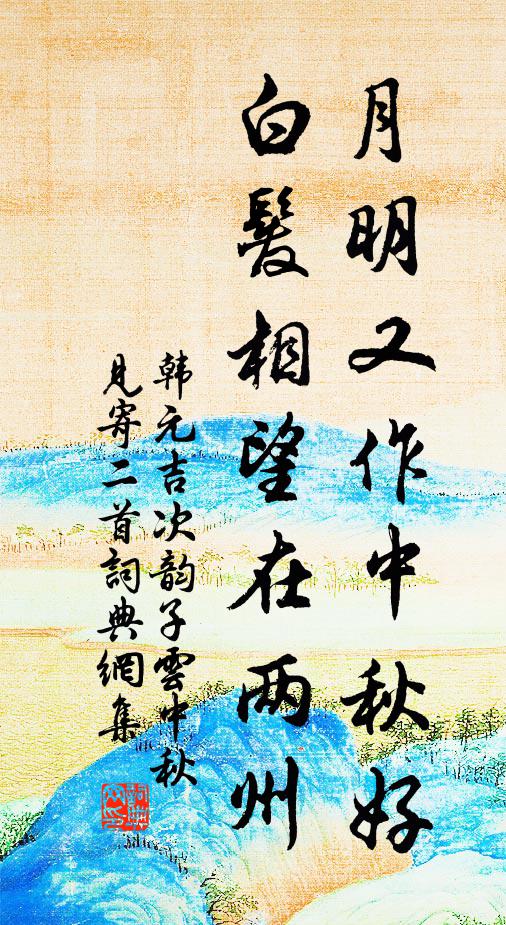 月明又作中秋好
白髮相望在两州
韩元吉次韵子雲中秋
見寄二首詞典網集